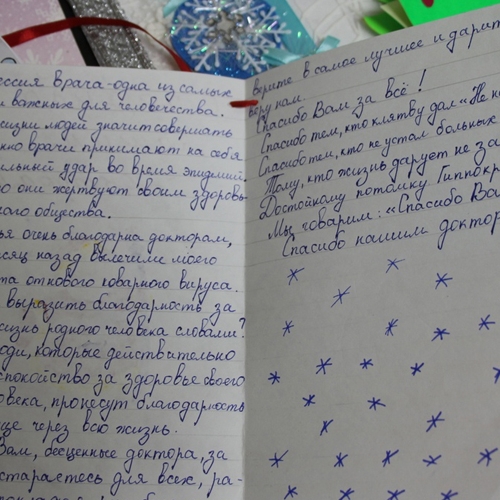 ессия врача-одна из самых
и важных для человечества.
изни людей значит совершать
нно врачи принимают на себя
ильный удар во время эпидмий.
о они жертвуют своим здоровь-
его общества.
ья очень благодарна докторам,
сяц назад вылечили моего
та от нового коварного вируса.
выразить благодарность за
жизнь родного человека словами?
юди, которые действительно
спокойство за здоровья своего
овека, пронесут благодарность
ще через всю жизнь.
Вам, бесценные доктора, за
стараетесь для всех, ра-
верите в самое лучшее и дарит
веру нам.
Спасибо Вам за всё!
Спасибо тем, кто клятву дал «Не н
Спасибо тем, кто не устал больных
Тому, кто жизнь дарует не за
Достойному потомку Гиппокр
Мы говорим: «Спасибо Ва
Спасибо нашим доктор